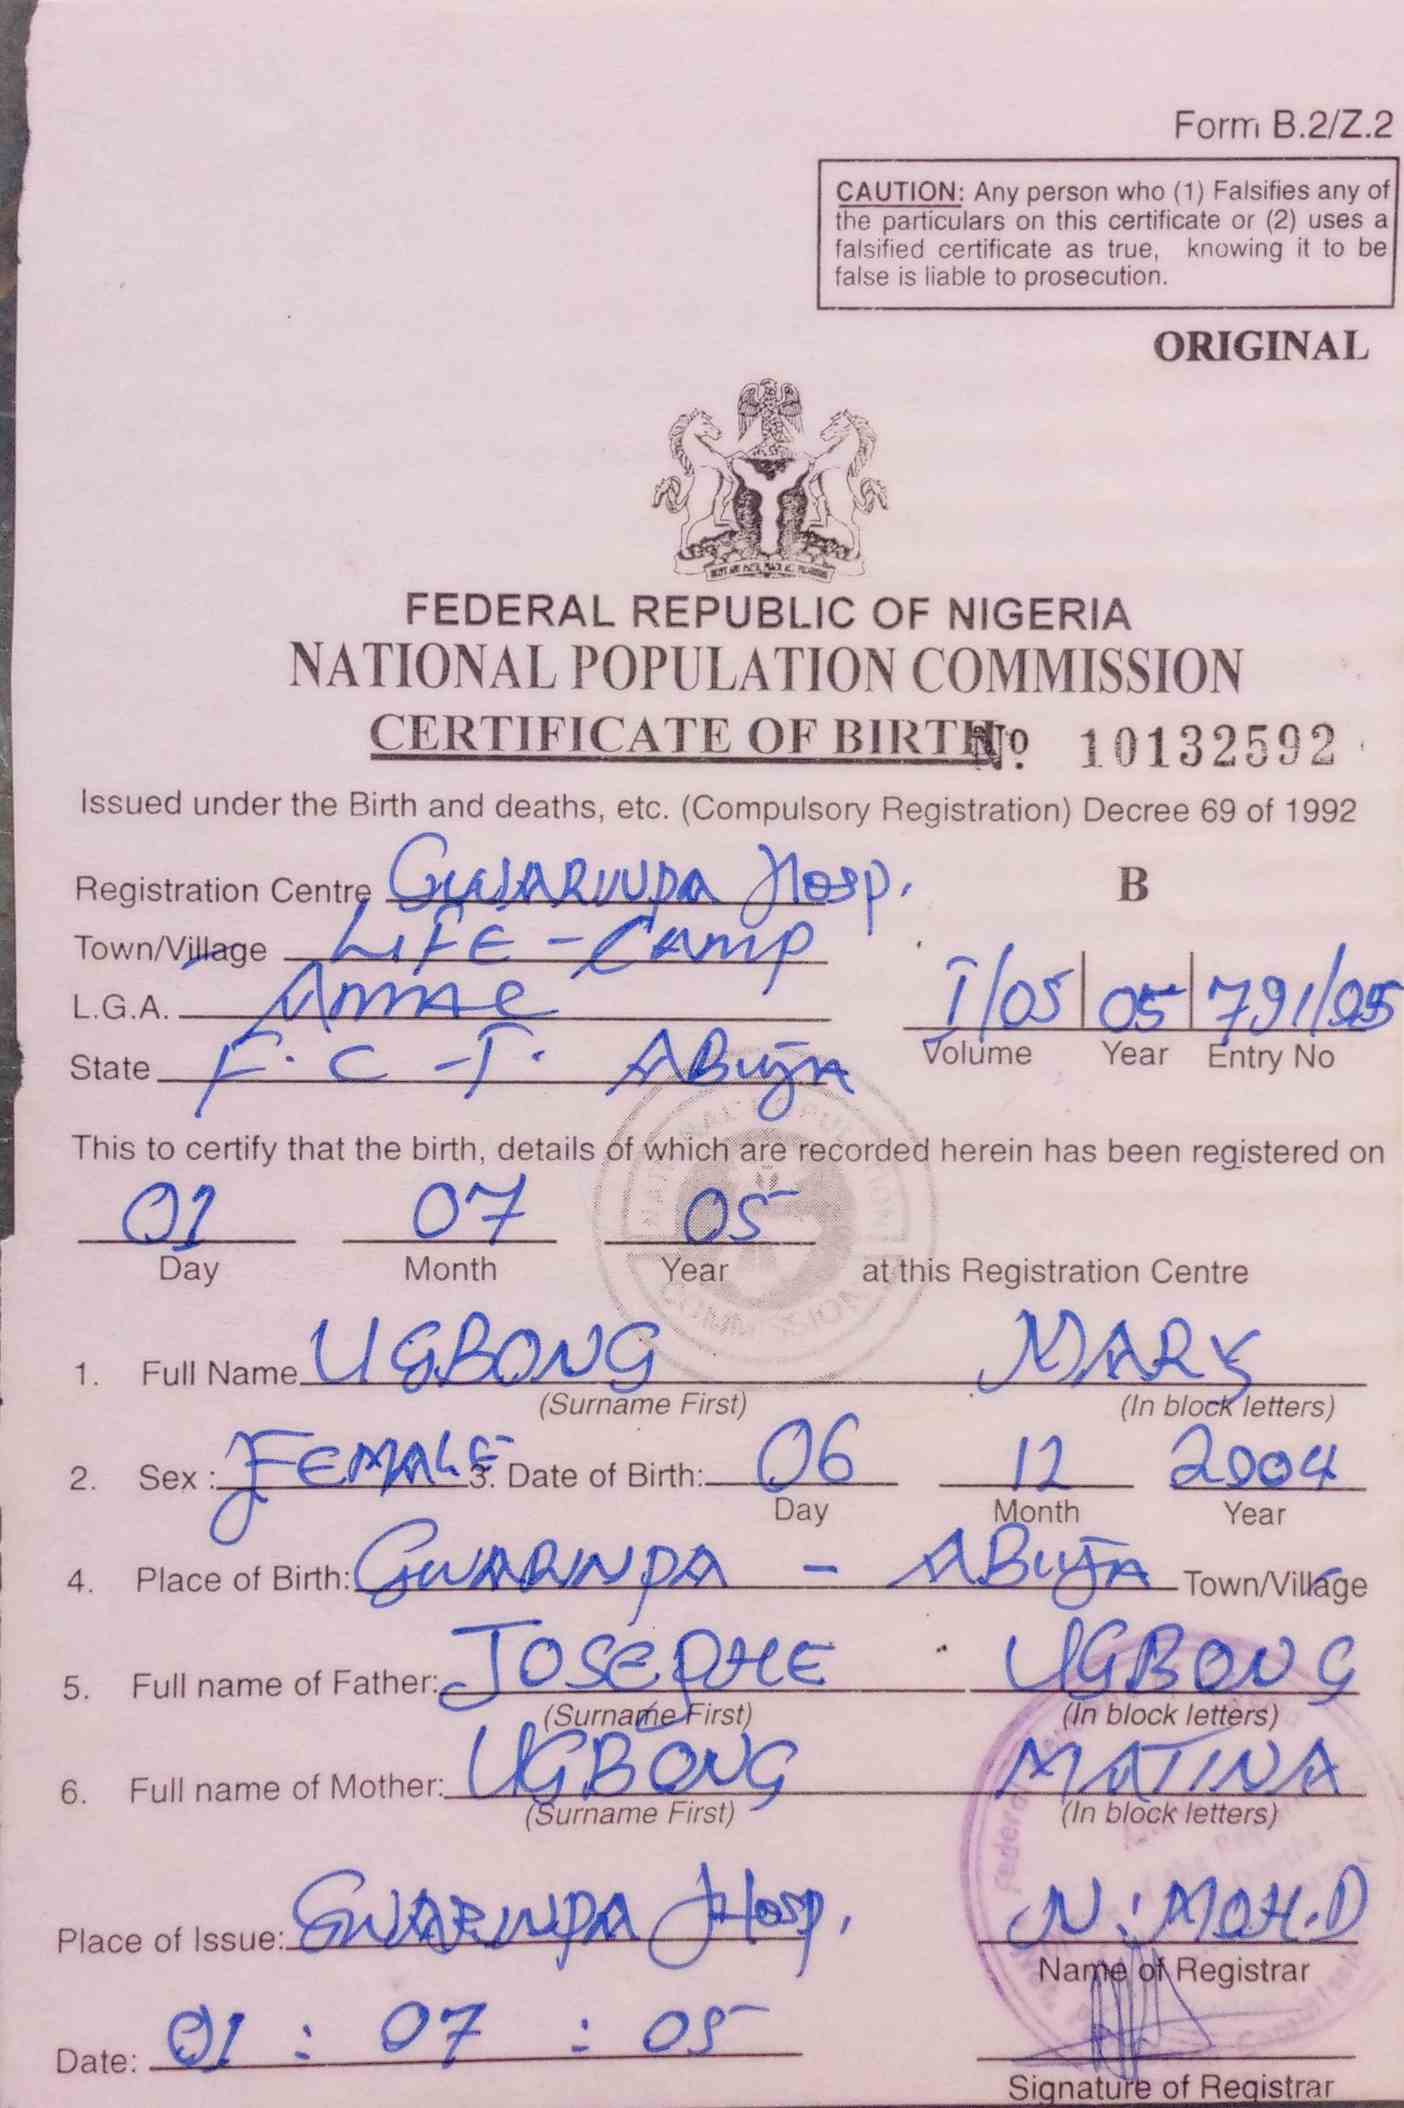 Form B.2/Z.2
CAUTION: Any person who (1) Falsifies any of
the particulars on this certificate or (2) uses a
falsified certificate as true, knowing it to be
false is liable to prosecution.
ORIGINAL
FEDERAL REPUBLIC OF NIGERIA
NATIONAL POPULATION COMMISSION
CERTIFICATE OF BIRTH No 10132592
Issued under the Birth and deaths, etc. (Compulsory Registration) Decree 69 of 1992
Registration Centre GWARINPA Hosp. B
Town/Village LIFE-CAMP
L.G.A. AMAC 1/05 05 791/05
State F.C.T. ABUJA Volume Year Entry No
This to certify that the birth, details of which are recorded herein has been registered on
01 07 05
Day Month Year at this Registration Centre
1. Full Name UGBONG MARY
(Surname First) (In block letters)
2. Sex: FEMALE 3. Date of Birth: 06 12 2004
Day Month Year
4. Place of Birth: GWARINPA - ABUJA Town/Village
5. Full name of Father: JOSEPHE UGBONG
(Surname First) (In block letters)
6. Full name of Mother: UGBONG MATINA
(Surname First) (In block letters)
Place of Issue: GWARINPA Hosp. N. MOH.D
Name of Registrar
Date: 01 : 07 : 05
Signature of Registrar